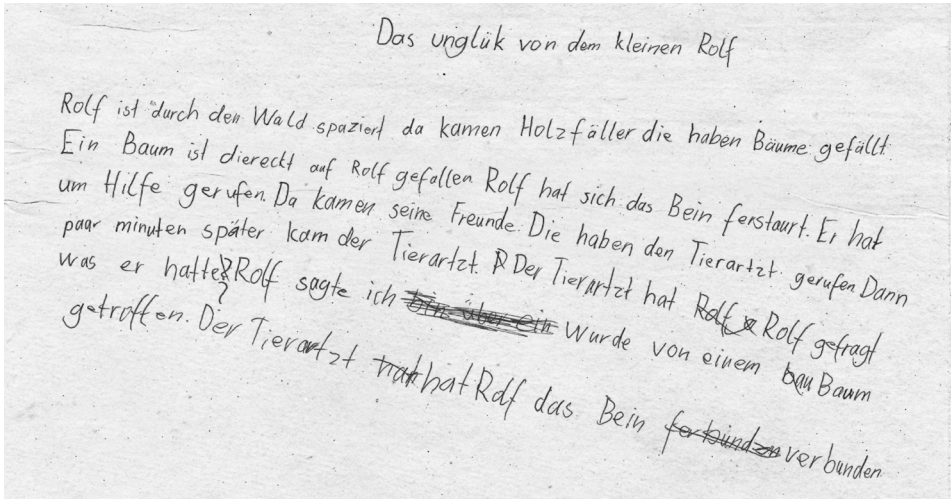 Das unglük von dem kleinen Rolf
Rolf ist durch den Wald spaziert da kamen Holzfäller die haben Bäume gefällt
Ein Baum ist diereckt auf Rolf gefallen Rolf hat sich das Bein ferstaurt. Er hat
um Hilfe gerufen. Da kamen seine Freunde. Die haben den Tierartzt gerufen Dann
paar minuten später kam der Tierartzt. Der Tierartzt hat Rolf gefragt
was er hatte? Rolf sagte ich bin über ein wurde von einem bau Baum
getroffen. Der Tierartzt hat Rolf das Bein ferbunden verbunden